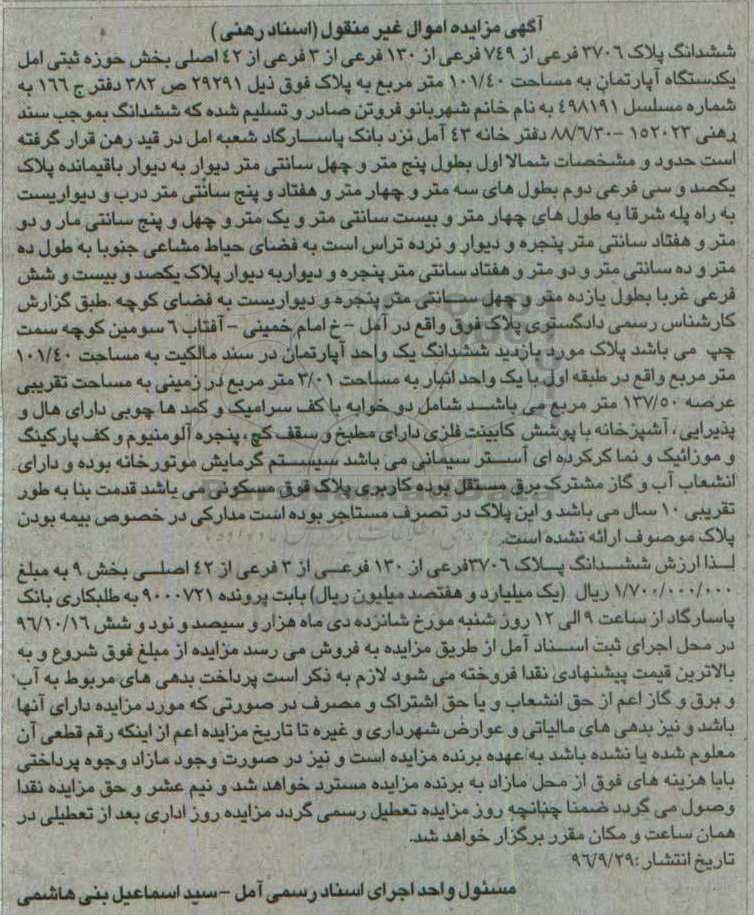 آگهی مزایده اموال غیر منقول (اسناد رهنی)
ششدانگ پلاک ۳۷۰۶ فرعی از ۷۴۹ فرعی از ۱۳۰ فرعی از ۳ فرعی از ۴۲ اصلی بخش حوزه ثبتی امل
یکدستگاه آپارتمان به مساحت ۱۰۱/۴۰ متر مربع به پلاک فوق ذیل ۲۹۲۹۱ ص ۳۸۲ دفتر ج ۱۶۶ به
شماره مسلسل ۴۹۸۱۹۱ به نام خانم شهربانو فروتن صادر و تسلیم شده که ششدانگ بموجب سند
رهنی ۱۵۲۰۲۳ -۸۸/۶/۳۰ دفتر خانه ۴۳ آمل نزد بانک پاسارگاد شعبه امل در قید رهن قرار گرفته
است حدود و مشخصات شمالا اول بطول پنج متر و چهل سانتی متر دیوار به دیوار باقیمانده پلاک
یکصد و سی فرعی دوم بطول های سه متر و چهار متر و هفتاد و پنج سانتی متر درب و دیواریست
به راه پله شرقا به طول های چهار متر و بیست سانتی متر و یک متر و چهل و پنج سانتی مار و دو
متر و هفتاد سانتی متر پنجره و دیوار و نرده تراس است به فضای حیاط مشاعی جنوبا به طول ده
متر و ده سانتی متر و دو متر و هفتاد سانتی متر پنجره و دیواربه دیوار پلاک یکصد و بیست و شش
فرعی غربا بطول یازده متر و چهل سانتی متر پنجره و دیواریست به فضای کوچه .طبق گزارش
کارشناس رسمی دادگستری پلاک فوق واقع در آمل - خ امام خمینی - آفتاب ۶ سومین کوچه سمت
چپ می باشد پلاک مورد بازدید ششدانگ یک واحد آپارتمان در سند مالکیت به مساحت ۱۰۱/۴۰
متر مربع واقع در طبقه اول با یک واحد انبار به مساحت ۳/۰۱ متر مربع در زمینی به مساحت تقریبی
عرصه ۱۳۷/۵۰ متر مربع می باشد شامل دو خوابه با کف سرامیک و کمد ها چوبی دارای هال و
پذیرایی، آشپزخانه با پوشش کابینت فلزی دارای مطبخ و سقف گچ، پنجره آلومنیوم و کف پارکینگ
و موزائیک و نما کرکرده ای آستر سیمانی می باشد سیستم گرمایش موتورخانه بوده و دارای
انشعاب آب و گاز مشترک برق مستقل بوده کاربری پلاک فوق مسکونی می باشد قدمت بنا به طور
تقریبی ۱۰ سال می باشد و این پلاک در تصرف مستاجر بوده است مدارکی در خصوص بیمه بودن
پلاک موصوف ارائه نشده است.
لذا ارزش ششدانگ پلاک ۳۷۰۶فرعی از ۱۳۰ فرعی از ۳ فرعی از ۴۲ اصلی بخش ۹ به مبلغ
۱/۷۰۰/۰۰۰/۰۰۰ ریال (یک میلیارد و هفتصد میلیون ریال) بابت پرونده ۹۰۰۰۷۲۱ به طلبکاری بانک
پاسارگاد از ساعت ۹ الی ۱۲ روز شنبه مورخ شانزده دی ماه هزار و سیصد و نود و شش ۹۶/۱۰/۱۶
در محل اجرای ثبت اسناد آمل از طریق مزایده به فروش می رسد مزایده از مبلغ فوق شروع و به
بالاترین قیمت پیشنهادی نقدا فروخته می شود لازم به ذکر است پرداخت بدهی های مربوط به آب
و برق و گاز اعم از حق انشعاب و یا حق اشتراک و مصرف در صورتی که مورد مزایده دارای آنها
باشد و نیز بدهی های مالیاتی و عوارض شهرداری و غیره تا تاریخ مزایده اعم از اینکه رقم قطعی آن
معلوم شده یا نشده باشد به عهده برنده مزایده است و نیز در صورت وجود مازاد وجوه پرداختی
بابا هزینه های فوق از محل مازاد به برنده مزایده مسترد خواهد شد و نیم عشر و حق مزایده نقدا
وصول می گردد ضمنا چنانچه روز مزایده تعطیل رسمی گردد مزایده روز اداری بعد از تعطیلی در
همان ساعت و مکان مقرر برگزار خواهد شد.
تاریخ انتشار :۹۶/۹/۲۹
مسئول واحد اجرای اسناد رسمی آمل - سید اسماعیل بنی هاشمی